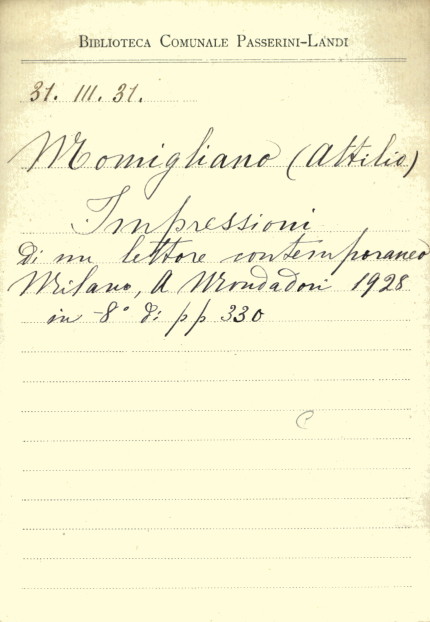 BIBLIOTECA COMUNALE PASSERINI-LANDI
31. III. 31.
Momigliano (Attilio)
Impressioni
di un lettore contemporaneo
Milano, A Mondadori 1928
in -8° di pp 330
C